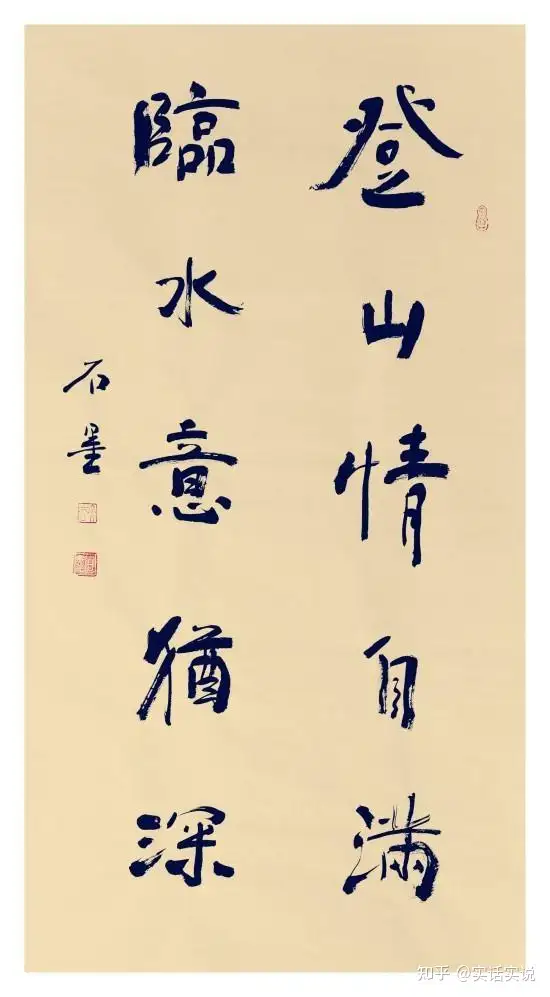 登山情自满
臨水意猶深
石墨
知乎 @实话实说